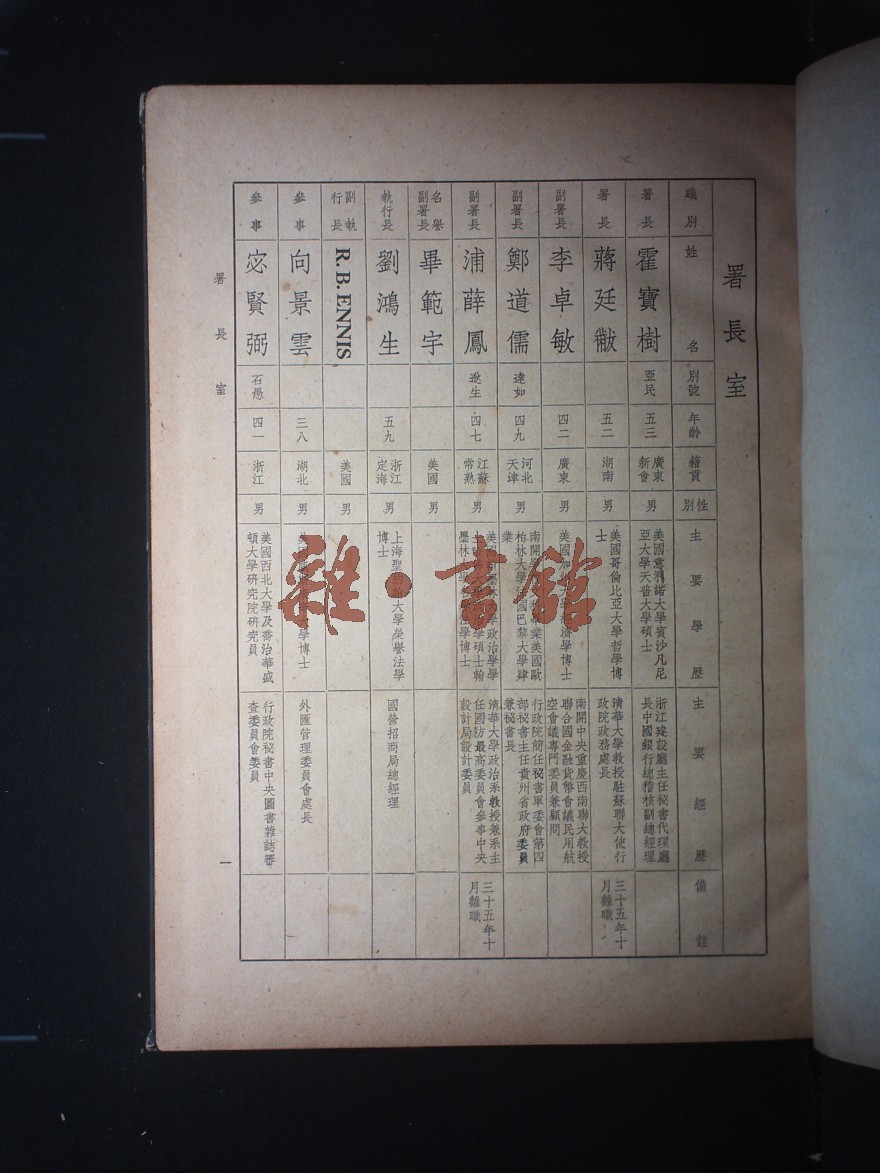 署長室
職別
姓名
別號
年齡
籍貫
性別
主要學歷
主要經歷
備註
署長
霍寶樹
亞民
五三
廣東
新會
男
美國意利諾大學賓沙凡尼
亞大學天普大學碩士
浙江建設廳主任秘書代理廳
長中國銀行總稽核副總經理
署長
蔣廷黻
五二
湖南
男
美國哥倫比亞大學哲學博
士
清華大學教授駐蘇聯大使行
政院政務處長
三十五年十
月離職
副署長
李卓敏
四二
廣東
男
美國加
大學
濟學博士
南開中央重慶西南聯大教授
聯合國金融貨幣會議民用航
空會議專門委員兼顧問
副署長
鄭道儒
達如
四九
河北
天津
男
南開
業美國歐
柏林大學
國巴黎大學肄
業
行政院簡任秘書軍委會第四
部秘書主任貴州省政府委員
兼秘書長
副署長
浦薛鳳
逖生
四七
江蘇
常熟
男
美國
大學政治學學
士
學碩士翰
墨林
法學博士
清華大學政治系教授兼系主
任國防最高委員會參事中央
設計局設計委員
三十五年十
月離職
名譽
副署長
畢範宇
美國
男
執行長
劉鴻生
五九
浙江
定海
男
上海聖約翰大學榮譽法學
博士
國營招商局總經理
副執
行長
R. B. ENNIS
美國
男
參事
向景雲
三八
湖北
男
美國
大學博士
外匯管理委員會處長
參事
宓賢弼
石愚
四一
浙江
男
美國西北大學及喬治華盛
頓大學研究院研究員
行政院秘書中央圖書雜誌審
查委員會委員
署長室
一
雜·書館